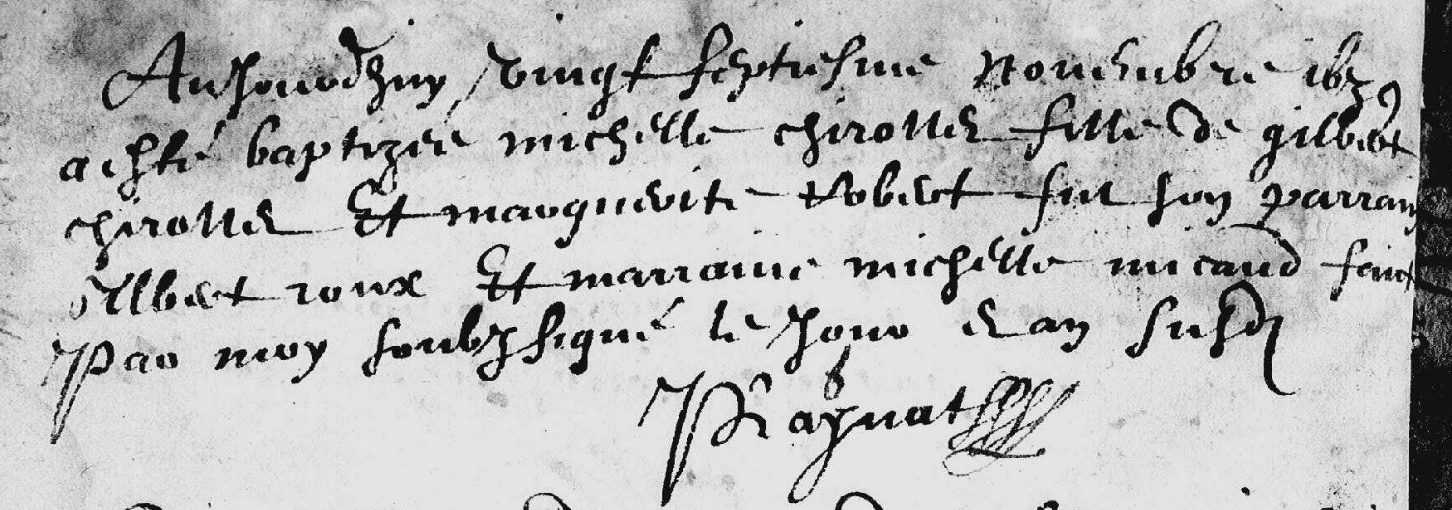 Aujourdhuy vingt septiesme Novembre 1639
a esté baptizée michelle chirollet fille de gilbert
chirollet Et marguerite Robert fut son parrain
gilbert roux Et marraine michelle micaud faict
Par moy soubzsigné le Jour et an susd
Raynat